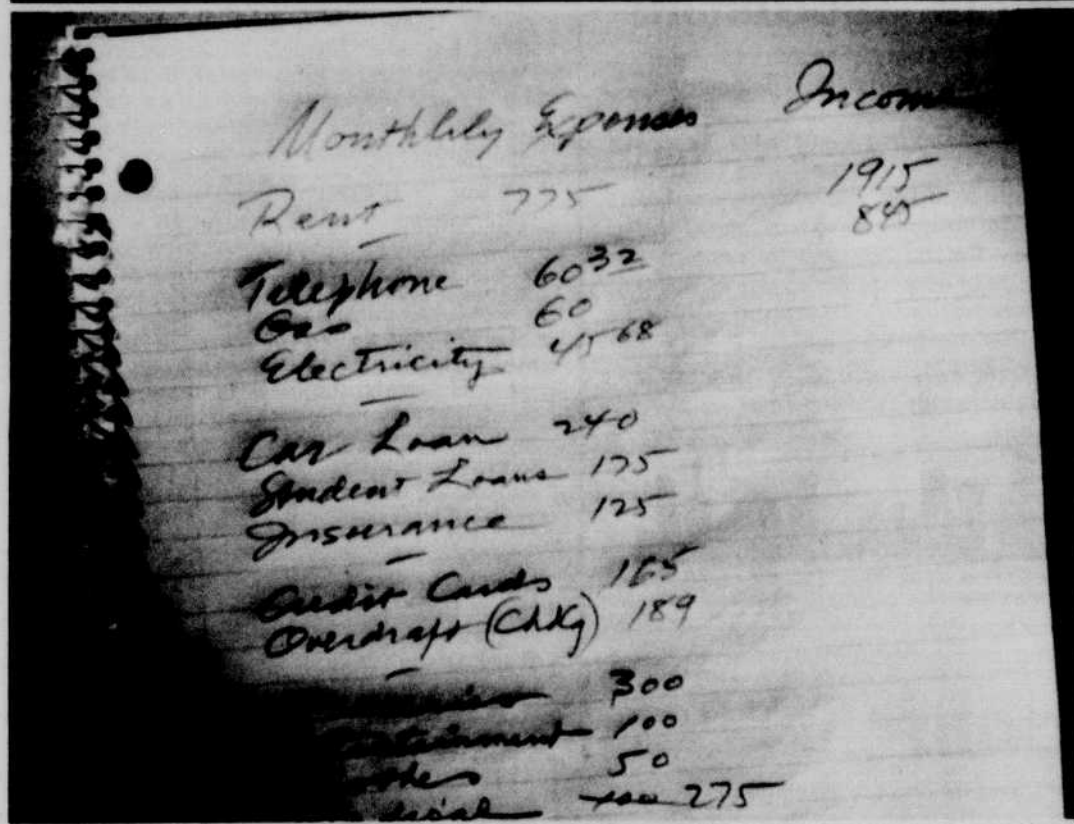 Monthlily Expenses Income
Rent 775 1915
845
Telephone 60 32
Gas 60
Electricity 45 68
Car Loan 240
Student Loans 175
Insurance 125
Credit Cards 165
Overdraft (Chkg) 189
300
tainment 100
thes 50
275